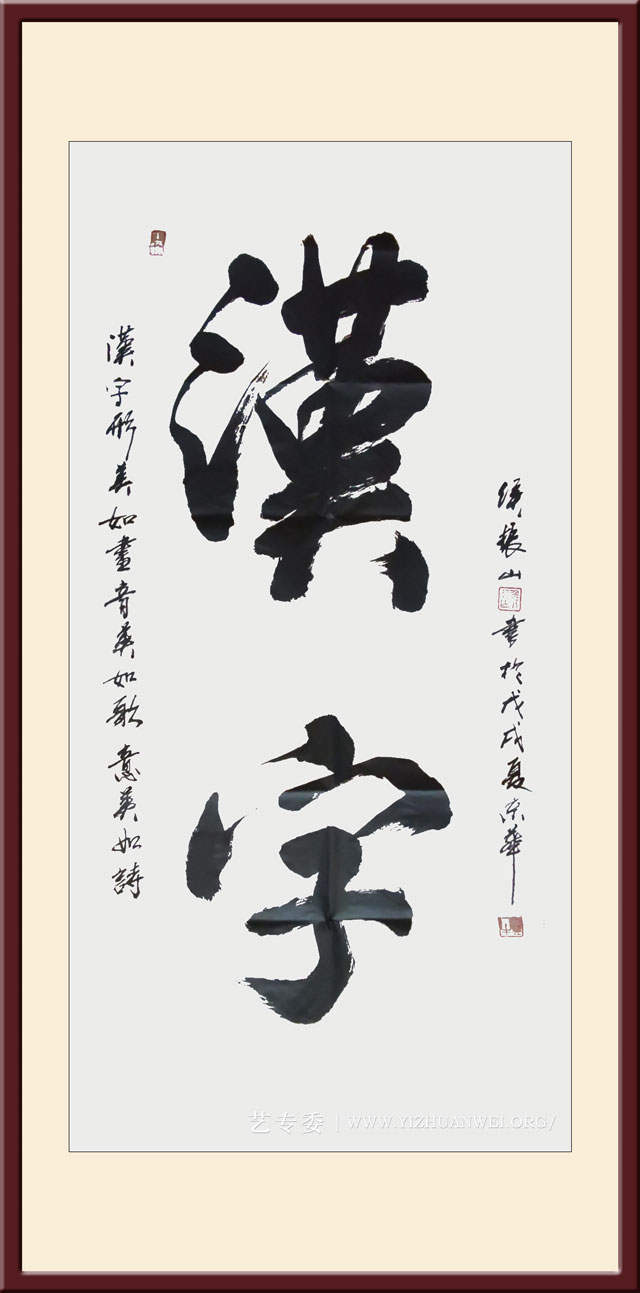 漢字
漢字形美如畫音美如歌意美如詩
振山
書於戊戌夏京華
艺专委 | WWW.YIZHUANWEI.ORG/